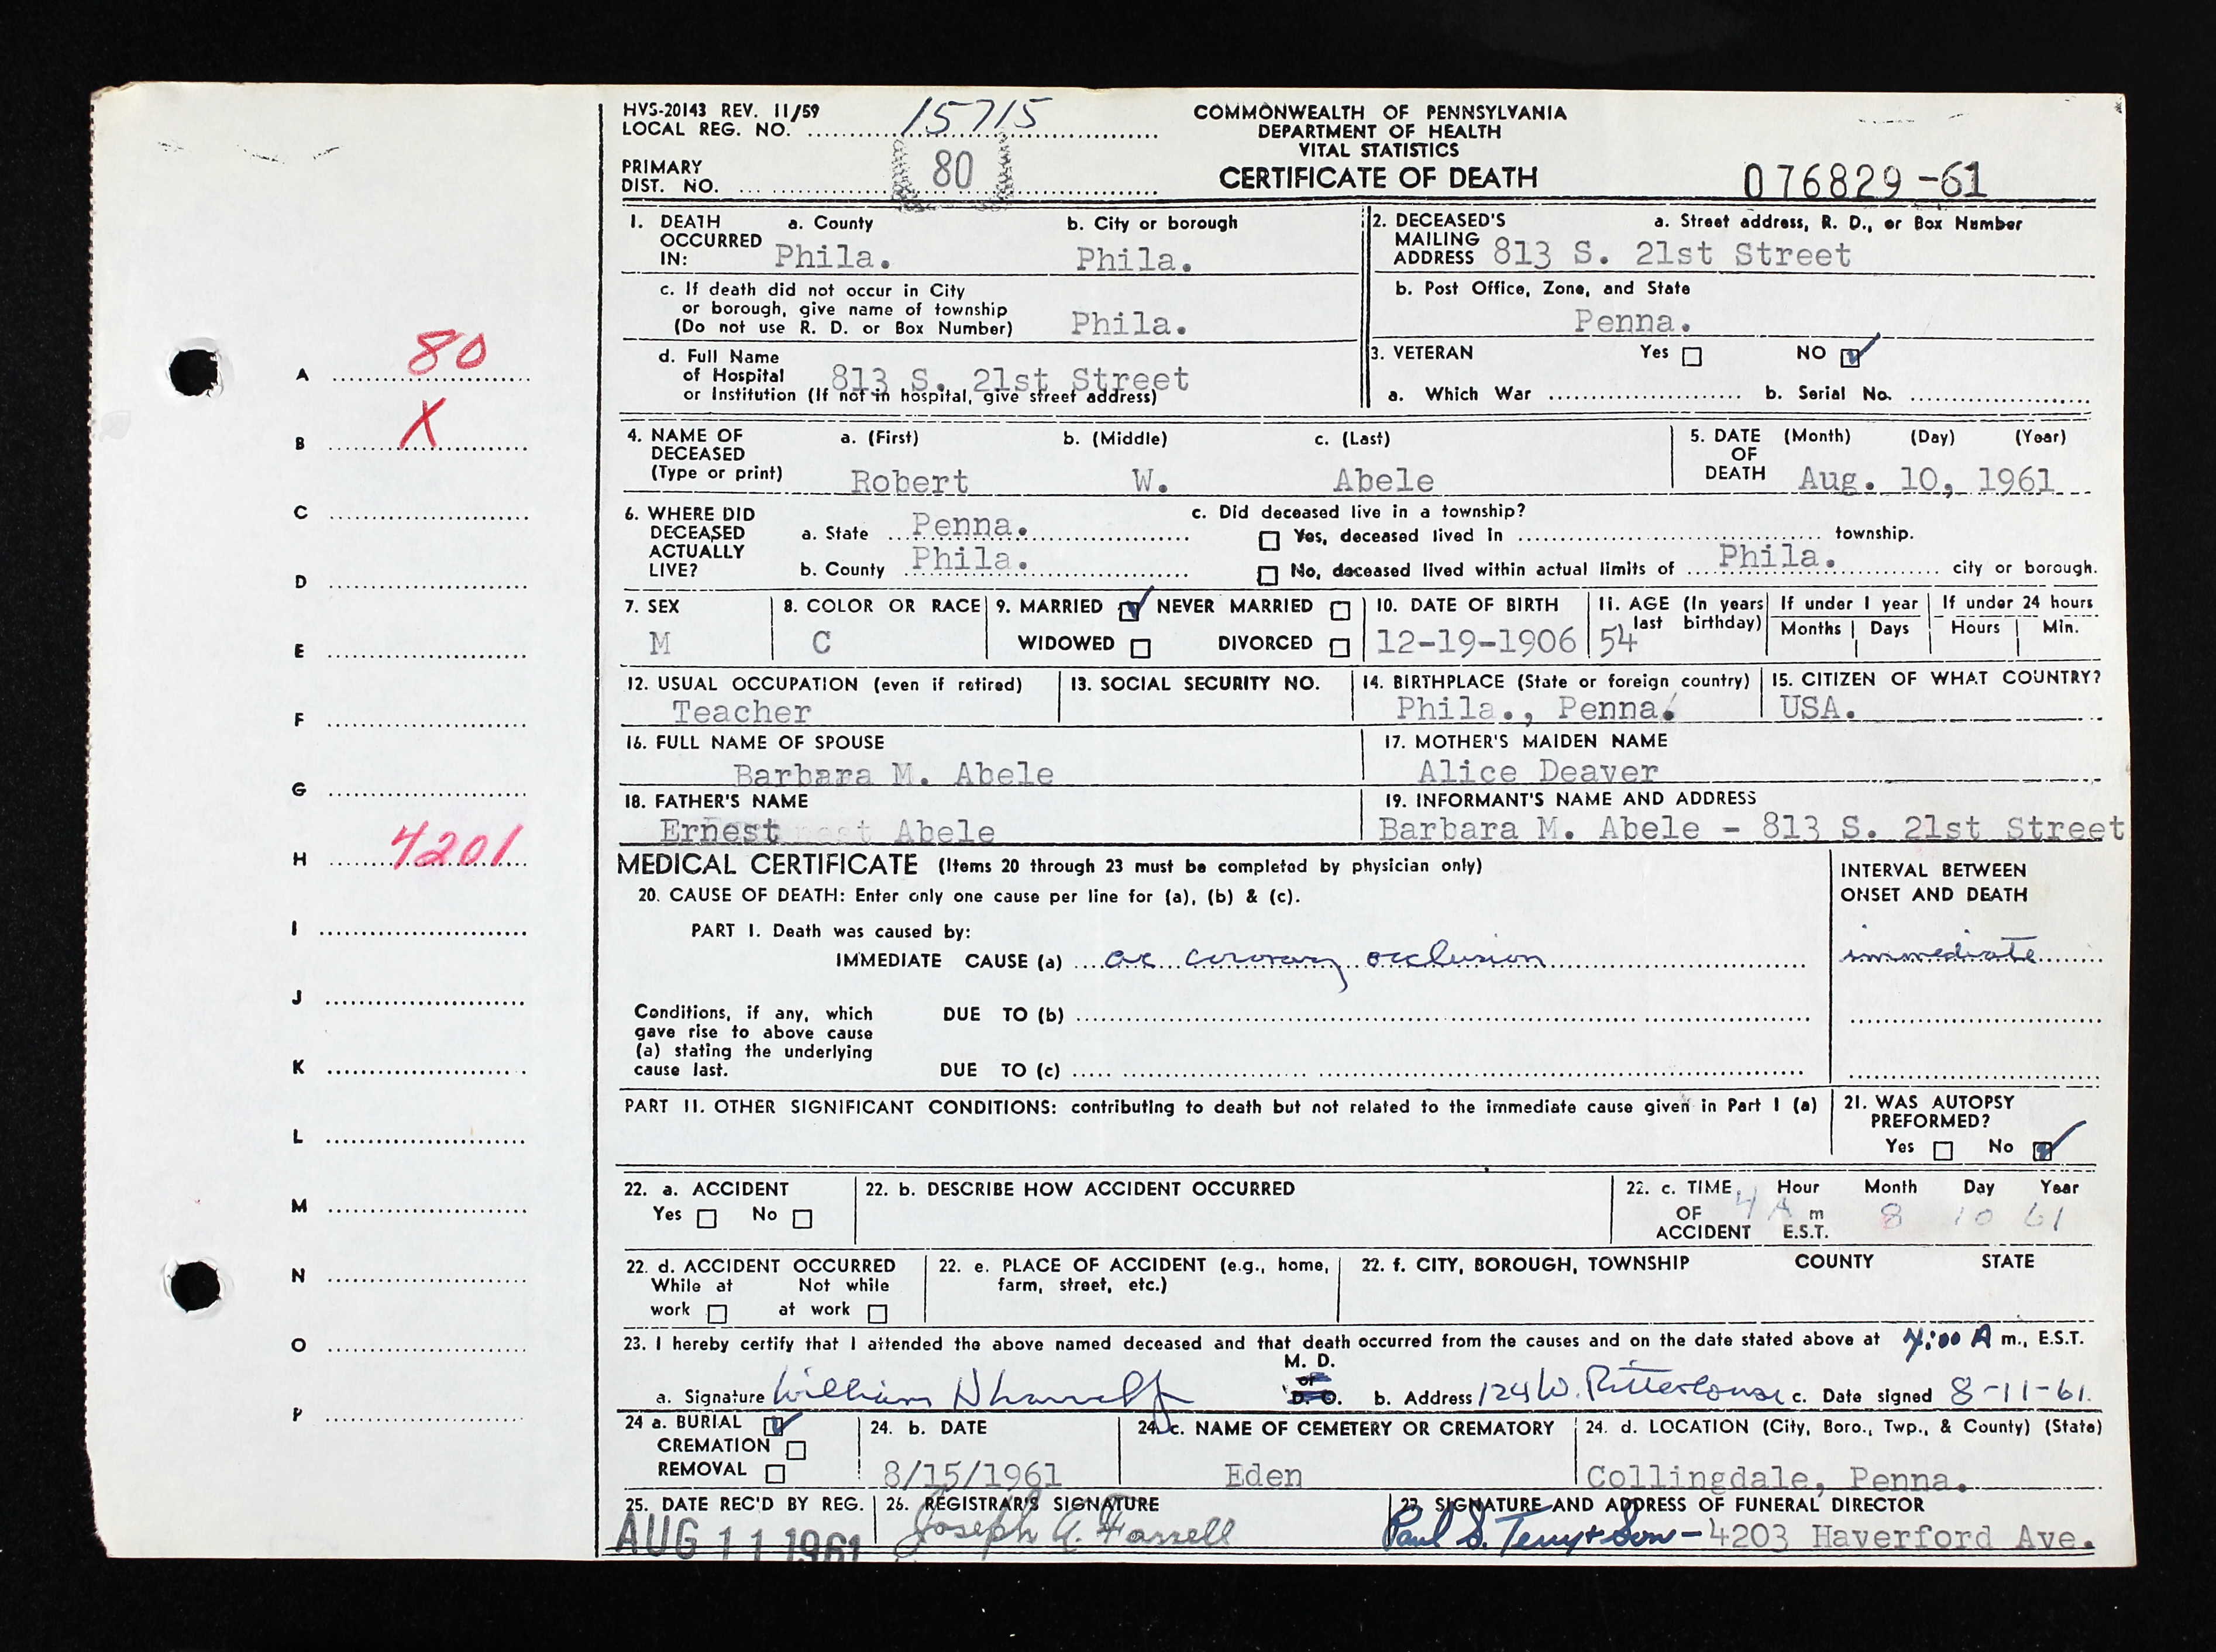 HVS-20143 REV. 11/59
LOCAL REG. NO. 15715
PRIMARY
DIST. NO. 80
COMMONWEALTH OF PENNSYLVANIA
DEPARTMENT OF HEALTH
VITAL STATISTICS
CERTIFICATE OF DEATH
076829-61
1. DEATH OCCURRED IN:
a. County
Phila.
b. City or borough
Phila.
2. DECEASED'S MAILING ADDRESS
a. Street address, R. D., or Box Number
813 S. 21st Street
c. If death did not occur in City
or borough, give name of township
(Do not use R. D. or Box Number) Phila.
b. Post Office, Zone, and State
Penna.
d. Full Name
of Hospital 813 S. 21st Street
or Institution (If not in hospital, give street address)
3. VETERAN Yes NO
a. Which War b. Serial No.
4. NAME OF
DECEASED
(Type or print)
a. (First) b. (Middle) c. (Last)
Robert W. Abele
5. DATE OF DEATH
(Month) (Day) (Year)
Aug. 10, 1961
6. WHERE DID
DECEASED
ACTUALLY
LIVE?
a. State Penna.
b. County Phila.
c. Did deceased live in a township?
Yes, deceased lived in township.
No, deceased lived within actual limits of Phila. city or borough.
7. SEX
M
8. COLOR OR RACE
C
9. MARRIED NEVER MARRIED
WIDOWED DIVORCED
10. DATE OF BIRTH
12-19-1906
11. AGE (In years
last birthday)
54
If under 1 year
Months Days
If under 24 hours
Hours Min.
12. USUAL OCCUPATION (even if retired)
Teacher
13. SOCIAL SECURITY NO.
14. BIRTHPLACE (State or foreign country)
Phila., Penna.
15. CITIZEN OF WHAT COUNTRY?
USA.
16. FULL NAME OF SPOUSE
Barbara M. Abele
17. MOTHER'S MAIDEN NAME
Alice Deaver
18. FATHER'S NAME
Ernest Abele
19. INFORMANT'S NAME AND ADDRESS
Barbara M. Abele - 813 S. 21st Street
MEDICAL CERTIFICATE (Items 20 through 23 must be completed by physician only)
20. CAUSE OF DEATH: Enter only one cause per line for (a), (b) & (c).
INTERVAL BETWEEN
ONSET AND DEATH
PART I. Death was caused by:
IMMEDIATE CAUSE (a) ac coronary occlusion
immediate
Conditions, if any, which
gave rise to above cause
(a) stating the underlying
cause last.
DUE TO (b)
DUE TO (c)
PART II. OTHER SIGNIFICANT CONDITIONS: contributing to death but not related to the immediate cause given in Part I (a)
21. WAS AUTOPSY
PREFORMED?
Yes No
22. a. ACCIDENT
Yes No
22. b. DESCRIBE HOW ACCIDENT OCCURRED
22. c. TIME OF ACCIDENT
Hour Month Day Year
4 A m 8 10 61
E.S.T.
22. d. ACCIDENT OCCURRED
While at Not while
work at work
22. e. PLACE OF ACCIDENT (e.g., home,
farm, street, etc.)
22. f. CITY, BOROUGH, TOWNSHIP COUNTY STATE
23. I hereby certify that I attended the above named deceased and that death occurred from the causes and on the date stated above at 4:00 A m., E.S.T.
M. D.
or
D. O.
a. Signature William b. Address 124 W. Rittenhouse c. Date signed 8-11-61.
24 a. BURIAL
CREMATION
REMOVAL
24. b. DATE
8/15/1961
24. c. NAME OF CEMETERY OR CREMATORY
Eden
24. d. LOCATION (City, Boro., Twp., & County) (State)
Collingdale, Penna.
25. DATE REC'D BY REG.
AUG 11 1961
26. REGISTRAR'S SIGNATURE
Joseph A. Farrell
27. SIGNATURE AND ADDRESS OF FUNERAL DIRECTOR
Paul S. Terry + Son - 4203 Haverford Ave.
A 80
B X
C
D
E
F
G
H 4201
I
J
K
L
M
N
O
P